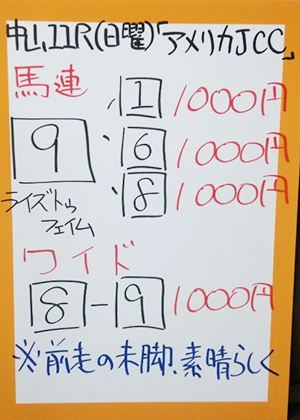 中山11R(日曜)「アメリカJCC」
馬連
9
1 1000円
6 1000円
8 1000円
ライズトゥ
フェイム
ワイド
8-9 1000円
※前走の末脚、素晴らしく